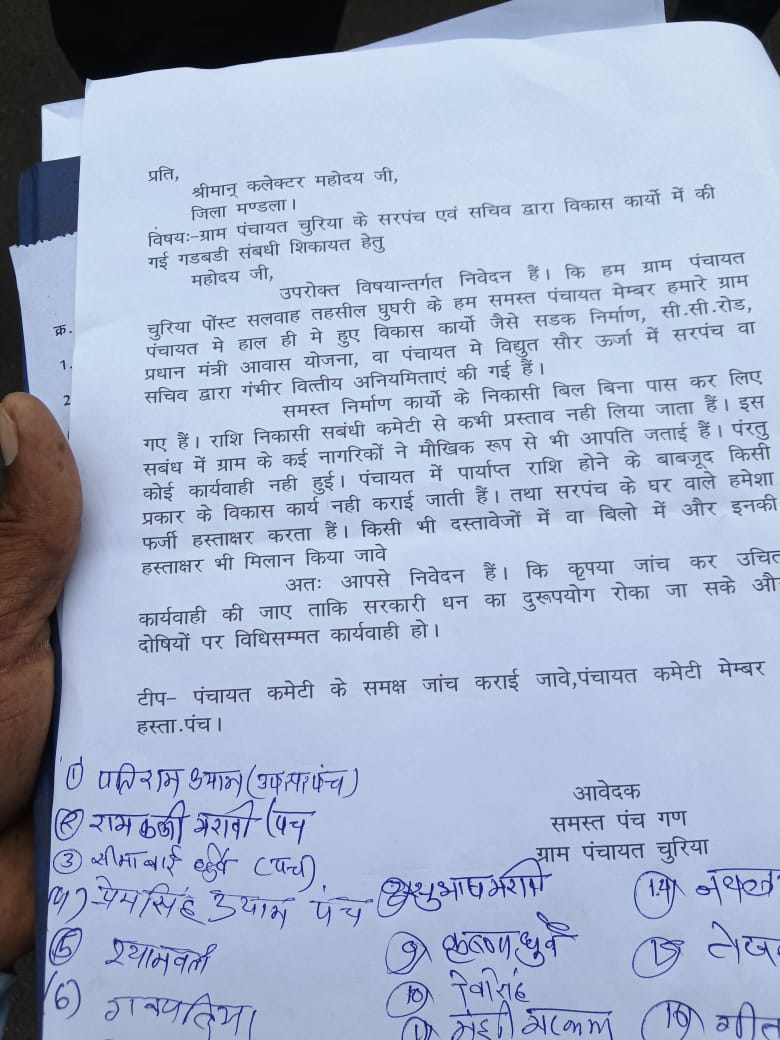 प्रति,
श्रीमान् कलेक्टर महोदय जी,
जिला मण्डला।
विषयः-ग्राम पंचायत चुरिया के सरपंच एवं सचिव द्वारा विकास कार्यो में की
गई गडबडी संबधी शिकायत हेतु
महोदय जी,
उपरोक्त विषयान्तर्गत निवेदन हैं। कि हम ग्राम पंचायत
चुरिया पोंस्ट सलवाह तहसील घुघरी के हम समस्त पंचायत मेम्बर हमारे ग्राम
पंचायत मे हाल ही मे हुए विकास कार्यो जैसे सडक निर्माण, सी.सी.रोड,
प्रधान मंत्री आवास योजना, वा पंचायत मे विद्युत सौर ऊर्जा में सरपंच वा
सचिव द्वारा गंभीर वित्तीय अनियमिताएं की गई हैं।
समस्त निर्माण कार्यो के निकासी बिल बिना पास कर लिए
गए हैं। राशि निकासी सबंधी कमेटी से कभी प्रस्ताव नही लिया जाता हैं। इस
सबंध में ग्राम के कई नागरिकों ने मौखिक रूप से भी आपति जताई हैं। पंरतु
कोई कार्यवाही नही हुई। पंचायत में पार्याप्त राशि होने के बाबजूद किसी
प्रकार के विकास कार्य नही कराई जाती हैं। तथा सरपंच के घर वाले हमेशा
फर्जी हस्ताक्षर करता हैं। किसी भी दस्तावेजों में वा बिलो में और इनकी
हस्ताक्षर भी मिलान किया जावे
अतः आपसे निवेदन हैं। कि कृपया जांच कर उचित
कार्यवाही की जाए ताकि सरकारी धन का दुरूपयोग रोका जा सके औ
दोषियों पर विधिसम्मत कार्यवाही हो।
टीप- पंचायत कमेटी के समक्ष जांच कराई जावे,पंचायत कमेटी मेम्बर
हस्ता.पंच।
आवेदक
समस्त पंच गण
ग्राम पंचायत चुरिया
क्र.
1.
2
① पतिराम उयाम (उपसरपंच)
② रामकली मरावी (पंच
③ सीमाबाई धुर्वे (पंच)
(4) प्रेमसिंह उयाम पंच
⑤ श्यामवती
(6)
⑨ धुर्वे
⑩
⑪
(14)
(15)
(16)